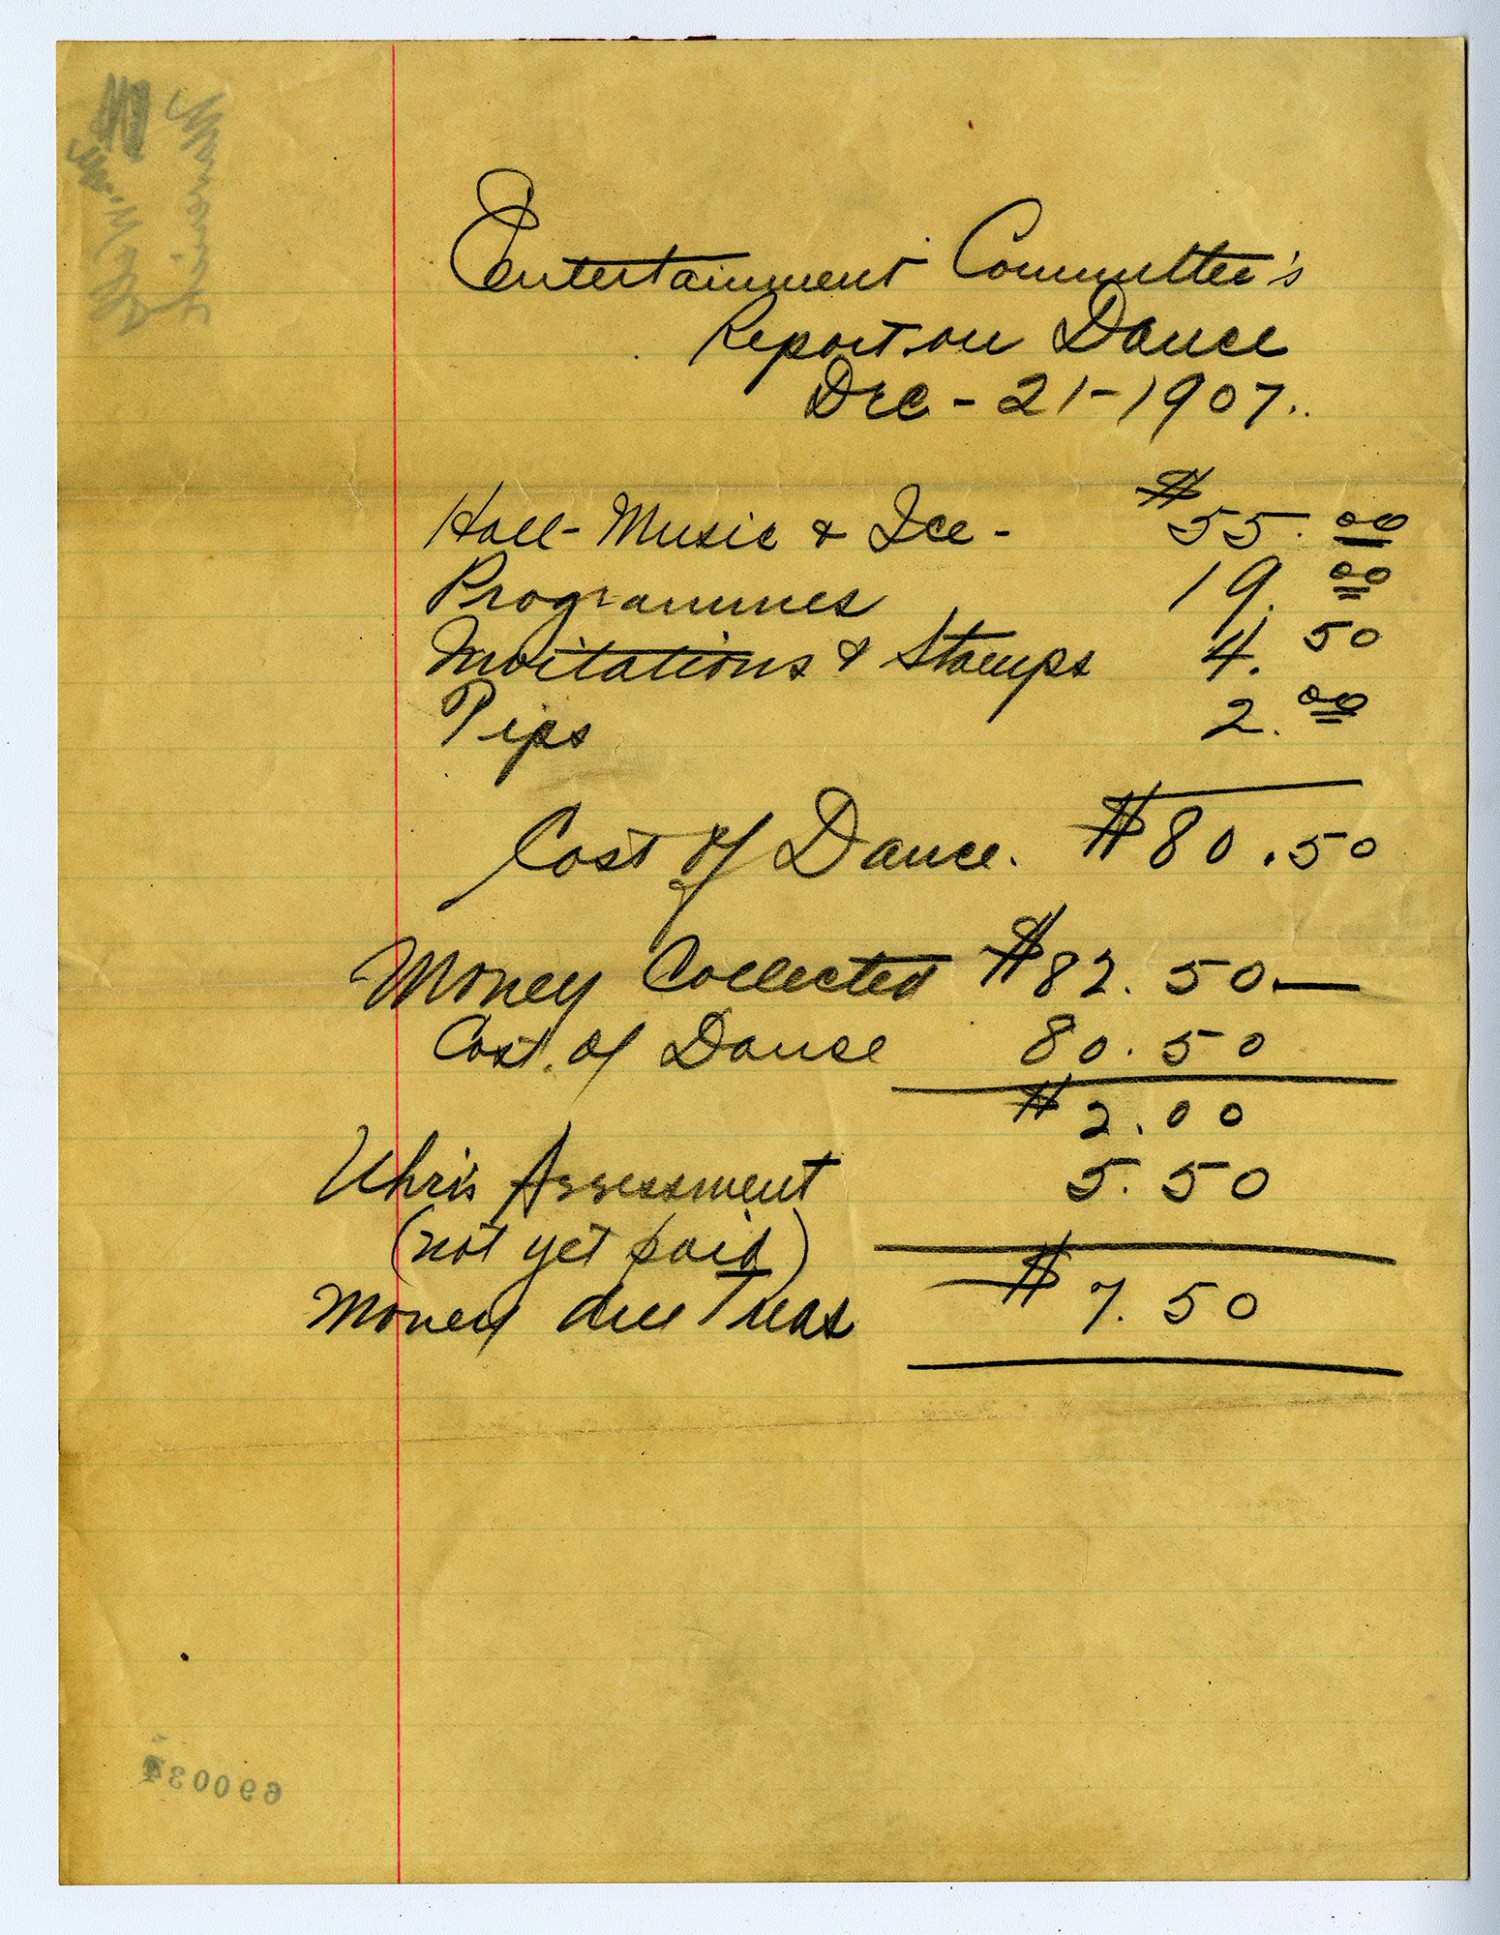 Entertainment Committee's
Report on Dance
Dec - 21 - 1907.
Hall - Music & Ice - $55.00
Programmes 19.00
Invitations & Stamps 4.50
Tips 2.00
Cost of Dance. $80.50
Money Collected $82.50
Cost of Dance 80.50
$2.00
Uhri's Assessment 5.50
(not yet paid)
Money due Treas $7.50